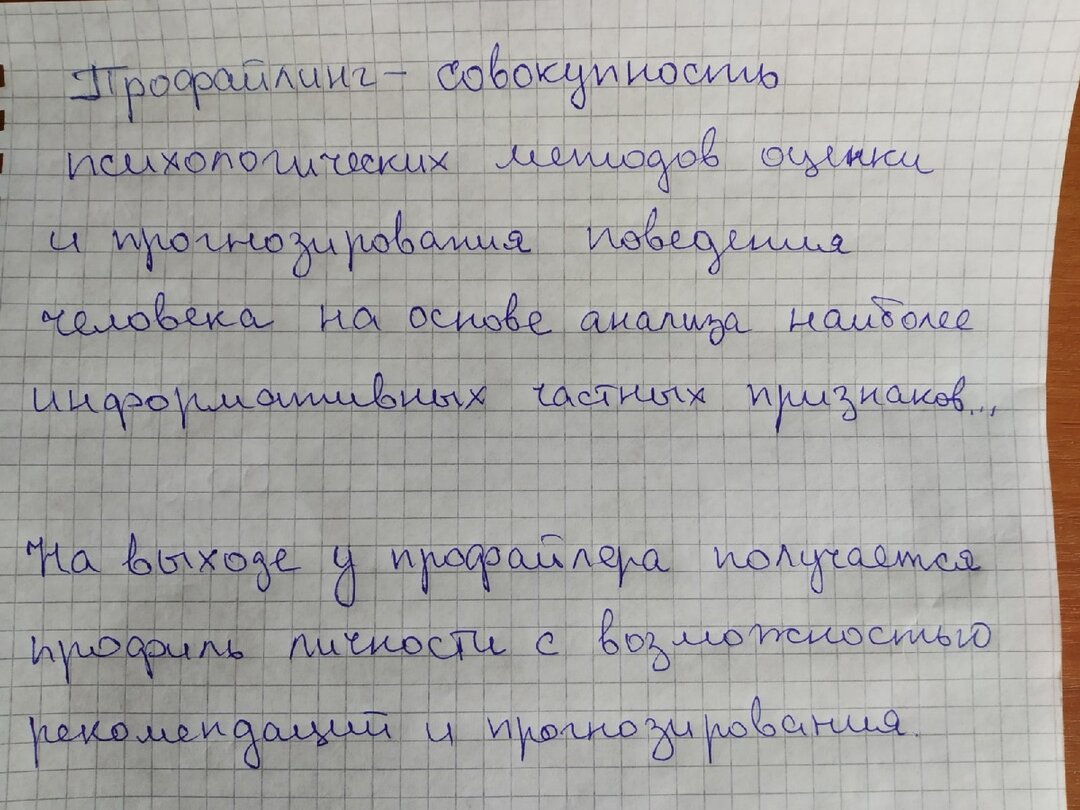 Профайлинг - совокупность
психологических методов оценки
и прогнозирования поведения
человека на основе анализа наиболее
информативных частных признаков...
На выходе у профайлера получается
профиль личности с возможностью
рекомендаций и прогнозирования.